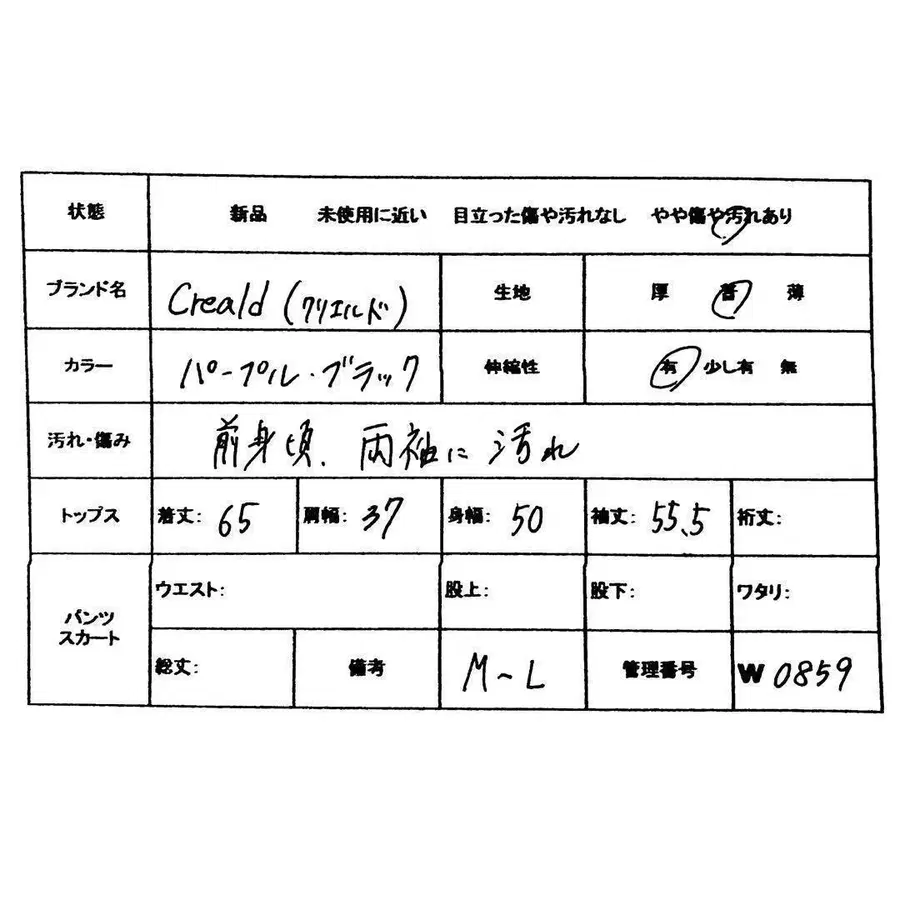 状態 新品 未使用に近い 目立った傷や汚れなし やや傷や汚れあり
ブランド名 Creald (クリエルド) 生地 厚 普 薄
カラー パープル・ブラック 伸縮性 有 少し有 無
汚れ・傷み 前身頃、両袖に汚れ
トップス 着丈: 65 肩幅: 37 身幅: 50 袖丈: 55.5 裄丈:
パンツ
スカート
ウエスト: 股上: 股下: ワタリ:
総丈: 備考 M~L 管理番号 W 0859